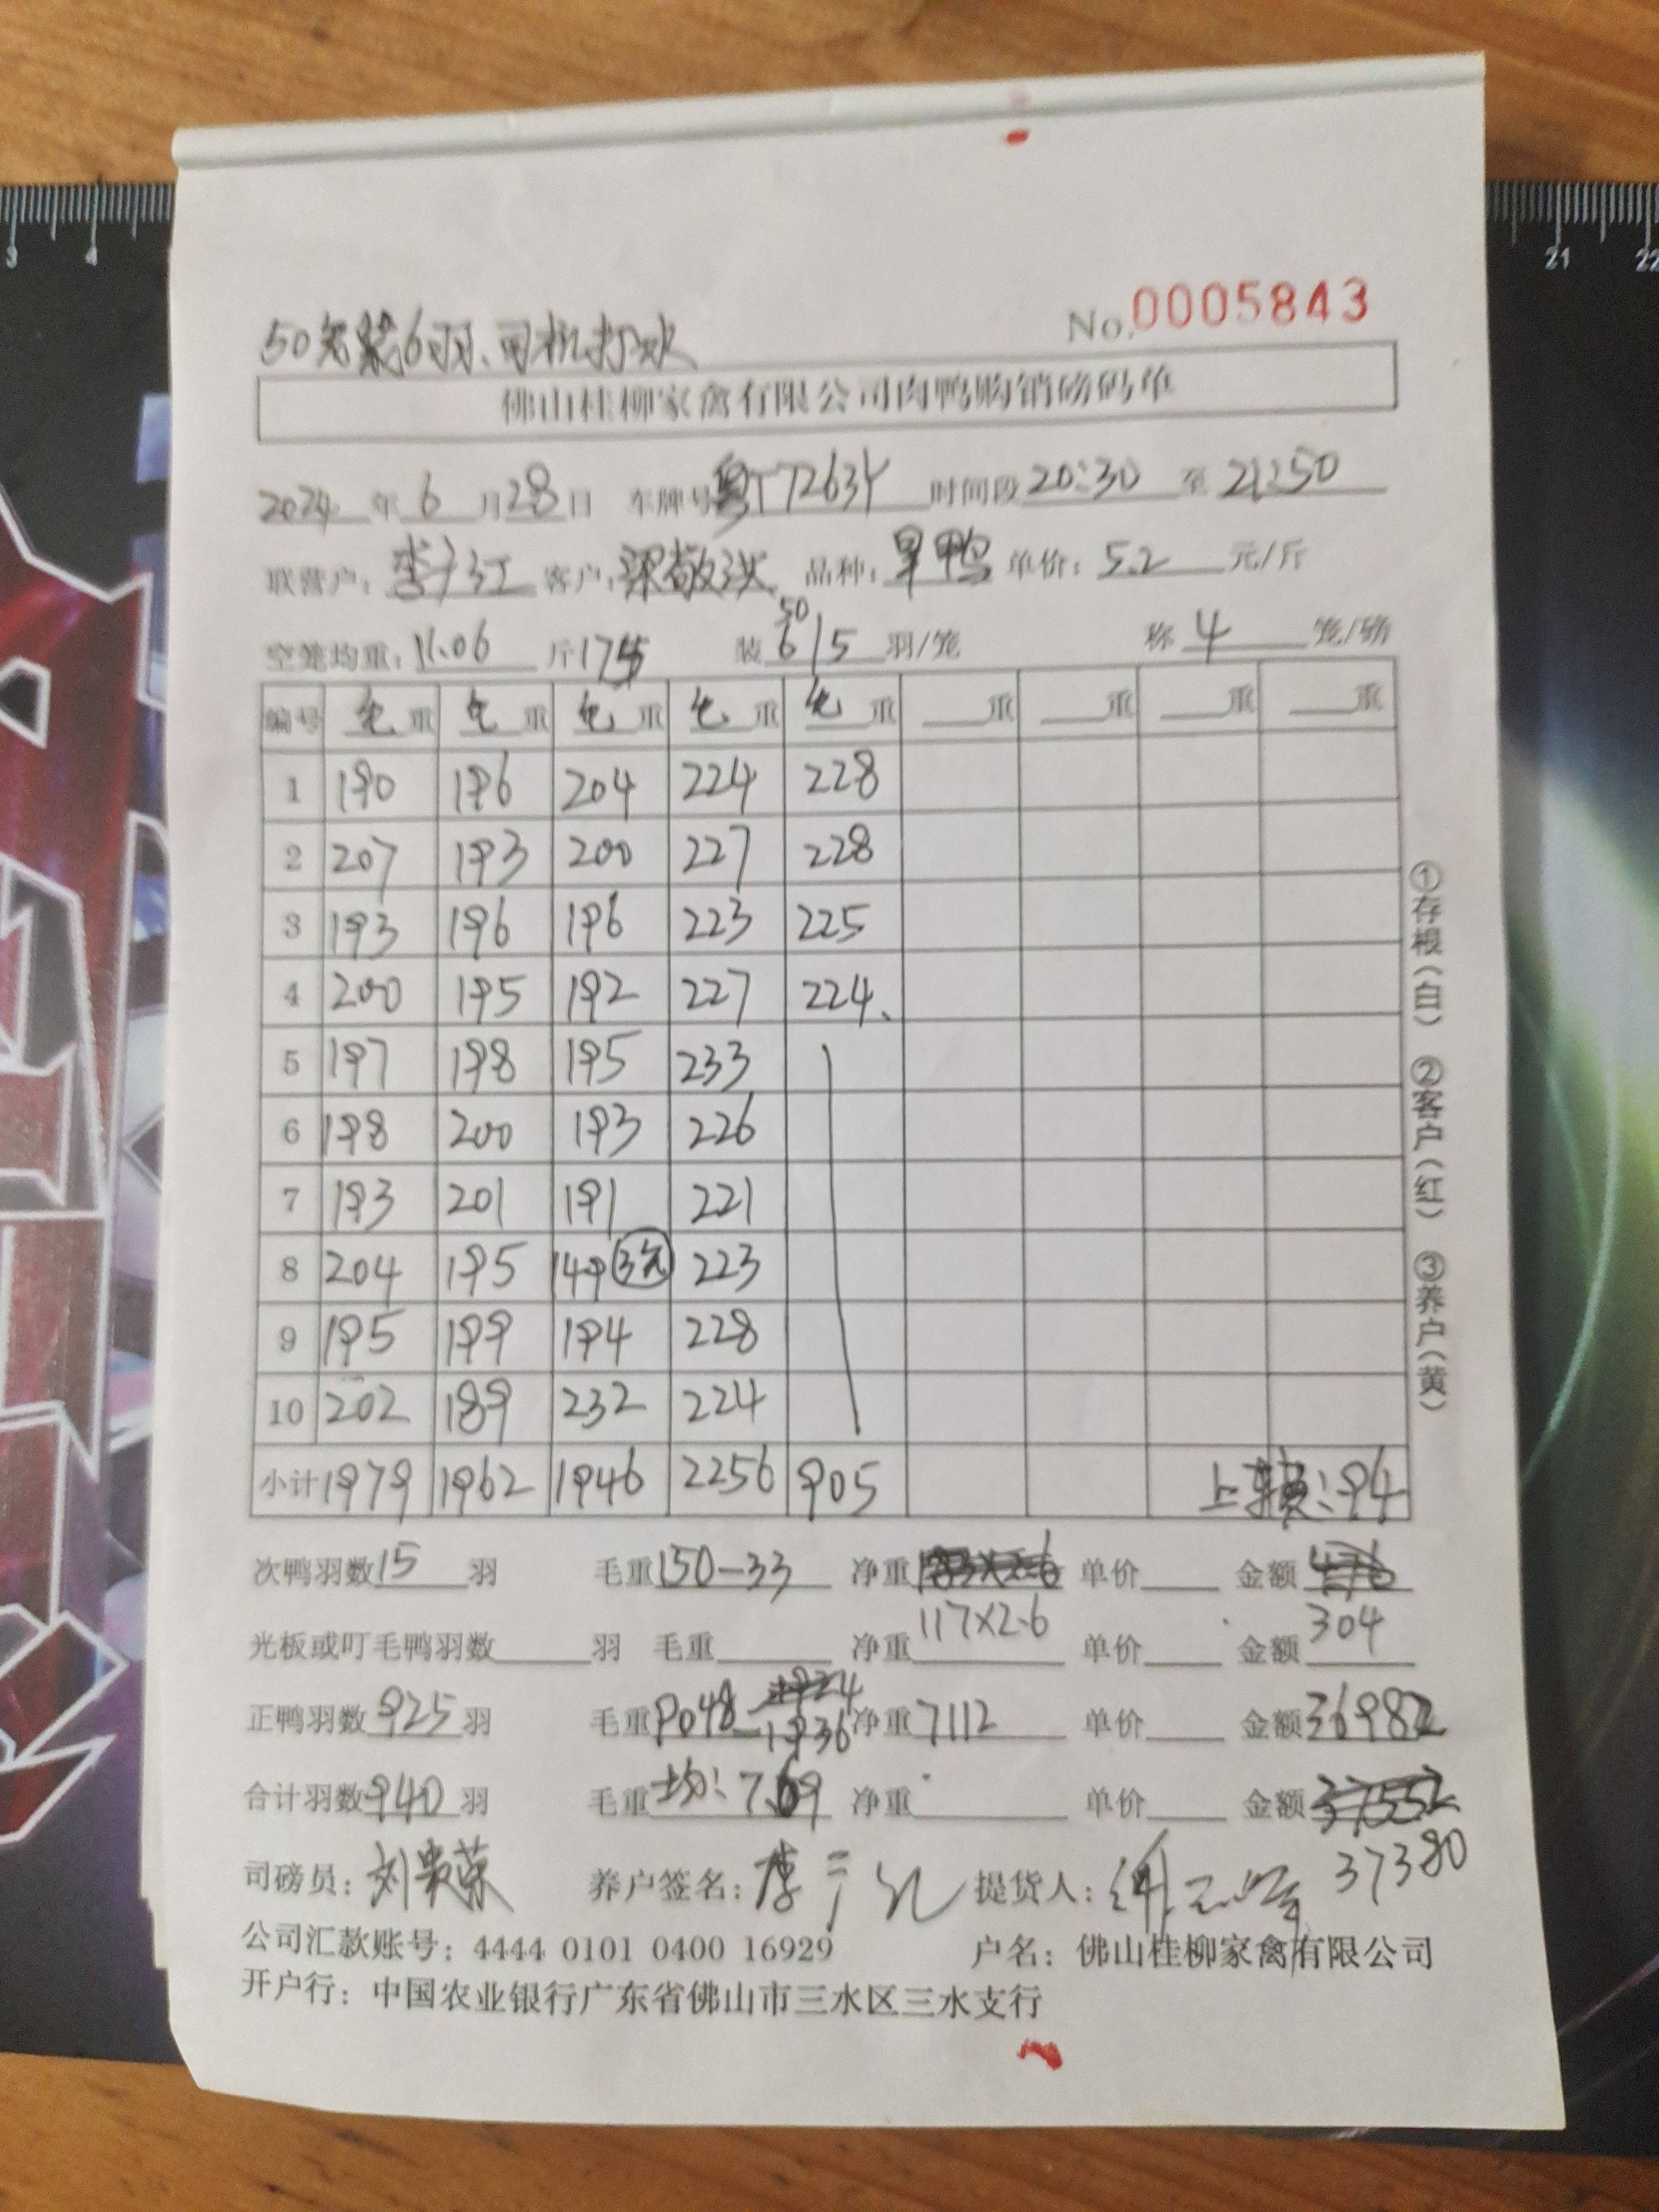 3 4 21 22
No. 0005843
50笼装6羽、司机打水
佛山桂柳家禽有限公司肉鸭购销磅码单
2024年6月28日 车牌号粤T7263Y 时间段20:30至21:50
联营户:李广红 客户:梁敬洪 品种:旱鸭 单价:5.2元/斤
50
空笼均重:11.06斤175 装6/5羽/笼 称4笼/磅
编号 毛重 毛重 毛重 毛重 毛重 重 重 重 重
1 190 196 204 224 228
2 207 193 200 227 228
3 193 196 196 223 225
4 200 195 192 227 224、
5 197 198 195 233
6 198 200 193 226
7 193 201 191 221
8 204 195 149 3笼 223
9 195 199 194 228
10 202 189 232 224
小计 1979 1962 1946 2256 905 上车损:94
①存根(白) ②客户(红) ③养户(黄)
次鸭羽数15羽 毛重150-33 净重183×2.6 单价 金额476
117×2.6 304
光板或叮毛鸭羽数 羽 毛重 净重 单价 金额
正鸭羽数925羽 毛重9048-1936 净重7112 单价 金额36982
合计羽数940羽 毛重均:7.69 净重 单价 金额37552
37380
司磅员:刘荣 养户签名:李广红 提货人:
公司汇款账号:4444 0101 0400 16929 户名:佛山桂柳家禽有限公司
开户行:中国农业银行广东省佛山市三水区三水支行